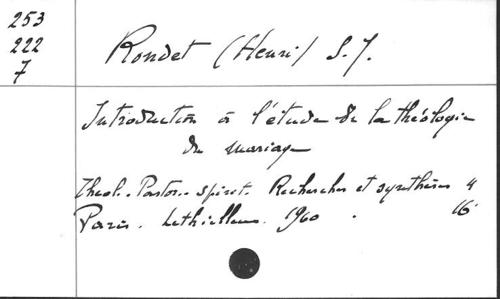 253
222
7
Rondet (Henri) S.J.
Introduction à l'étude de la théologie
du mariage
Theol. Pastor. spirit. Recherches et synthèses 4
Paris. Lethielleux. 1960. 16°